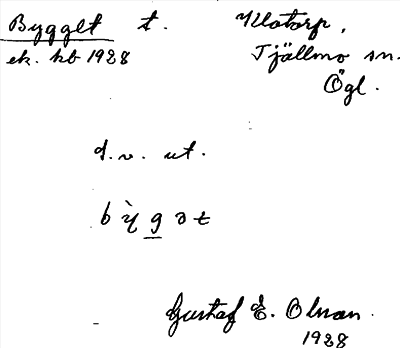 Bygget t. Klotorp,
ek. kb 1928 Tjällmo sn.
Ögl.
d.v. ut.
bỳgət
Gustaf E. Olman.
1928